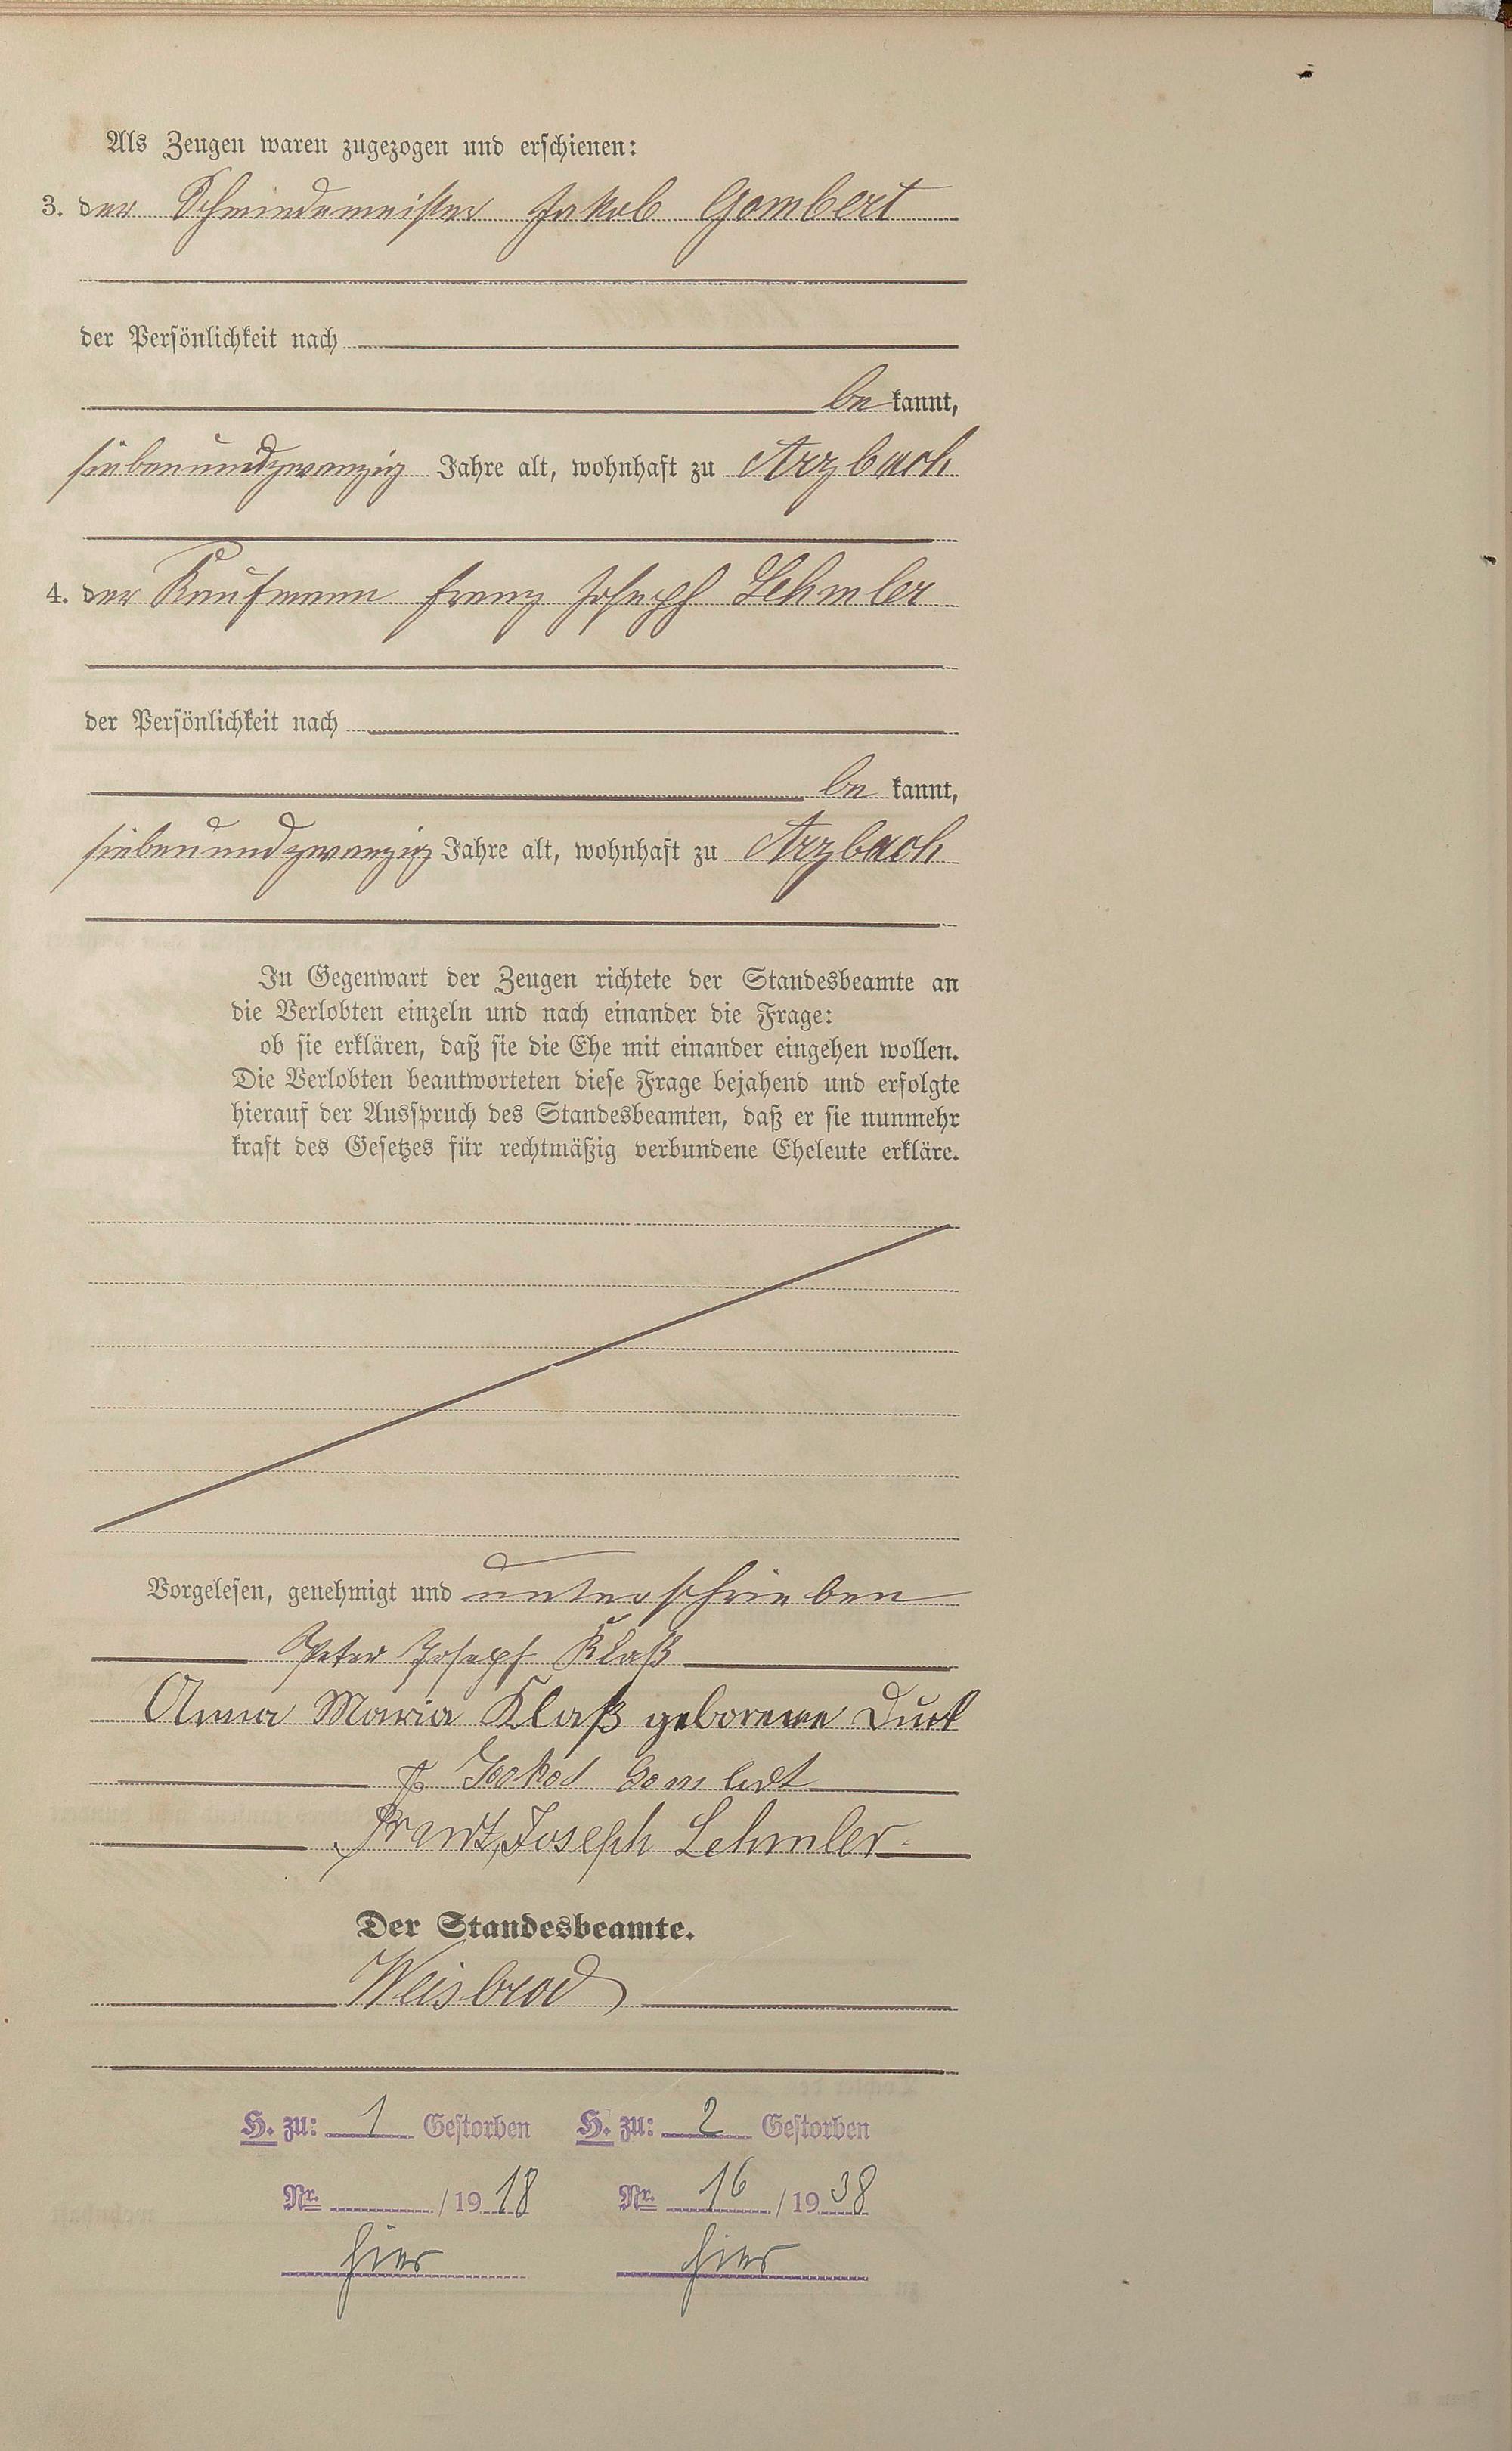 Als Zeugen waren zugezogen und erschienen:
3. der Schmiedemeister Jakob Gombert
der Persönlichkeit nach
be kannt,
siebenundzwanzig Jahre alt, wohnhaft zu Arzbach
4. der Kaufmann Franz Joseph Lehmler
der Persönlichkeit nach
be kannt,
siebenundzwanzig Jahre alt, wohnhaft zu Arzbach
In Gegenwart der Zeugen richtete der Standesbeamte an
die Verlobten einzeln und nach einander die Frage:
ob sie erklären, daß sie die Ehe mit einander eingehen wollen.
Die Verlobten beantworteten diese Frage bejahend und erfolgte
hierauf der Ausspruch des Standesbeamten, daß er sie nunmehr
kraft des Gesetzes für rechtmäßig verbundene Eheleute erkläre.
Vorgelesen, genehmigt und unterschrieben
Peter Joseph Klaß
Anna Maria Klaß geborene
Jakob Gombert
Franz Joseph Lehmler.
Der Standesbeamte.
Weisbrod
H. zu: 1 Gestorben H. zu: 2 Gestorben
Nr. /1918 Nr. 16/1938
hier hier